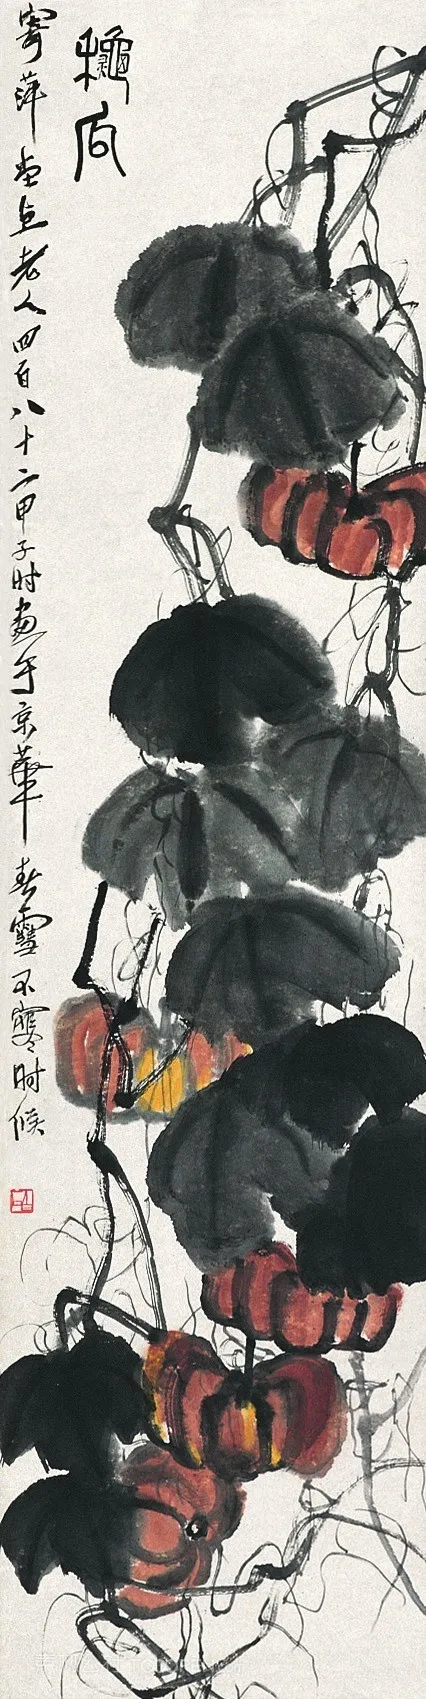 龝瓜
寄萍堂上老人四百八十二甲子时畫于京華春雪不寒时候